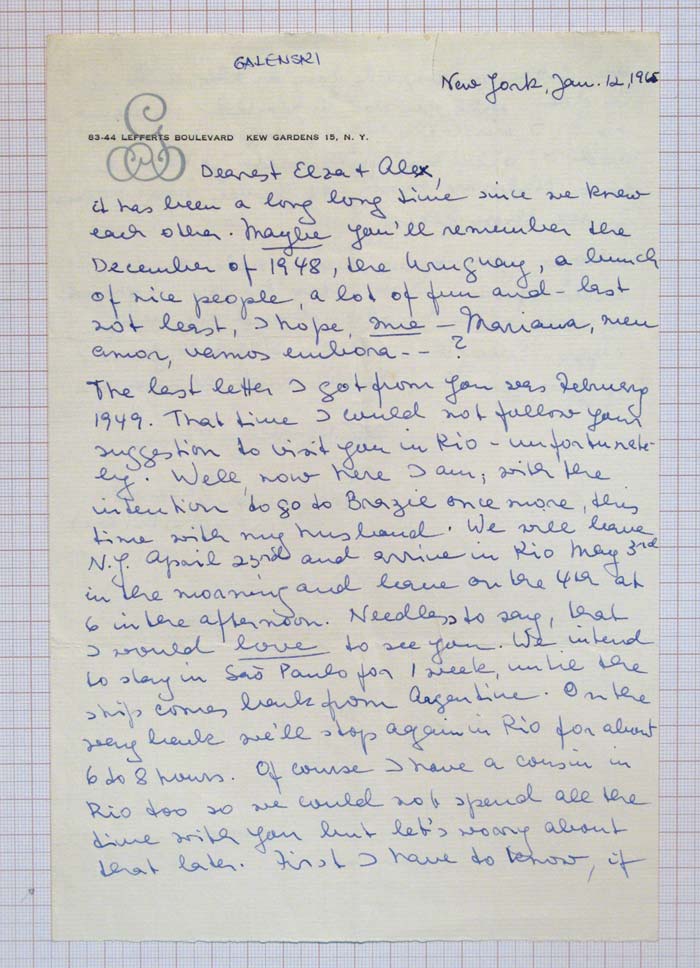 GALENSKI
New York, Jan. 12, 1965
83-44 LEFFERTS BOULEVARD KEW GARDENS 15, N. Y.
Dearest Elza + Alex,
it has been a long long time since we knew
each other. Maybe you'll remember the
December of 1948, the Uruguay, a bunch
of nice people, a lot of fun and - last
not least, I hope, me - Mariana, meu
amor, vamos embora - - ?
The last letter I got from you was February
1949. That time I could not follow your
suggestion to visit you in Rio - unfortunate-
ly. Well, now here I am, with the
intention to go to Brazil once more, this
time with my husband. We will leave
N.Y. April 23rd and arrive in Rio May 3rd
in the morning and leave on the 4th at
6 in the afternoon. Needless to say, that
I would love to see you. We intend
to stay in São Paulo for 1 week, until the
ship comes back from Argentine. On the
way back we'll stop again in Rio for about
6 to 8 hours. Of course I have a cousin in
Rio too so we could not spend all the
time with you but let's worry about
that later. First I have to know, if